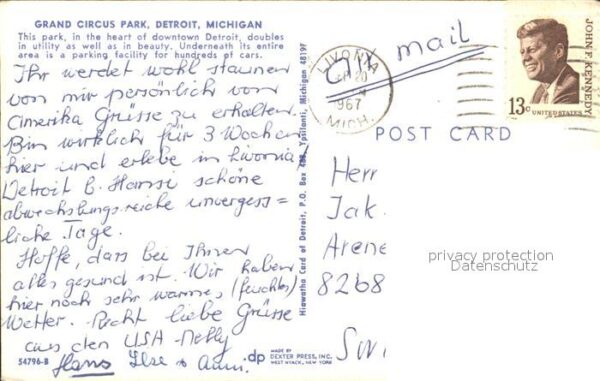 GRAND CIRCUS PARK, DETROIT, MICHIGAN
This park, in the heart of downtown Detroit, doubles
in utility as well as in beauty. Underneath its entire
area is a parking facility for hundreds of cars.
Ihr werdet wohl staunen
von mir persönlich von
Amerika Grüsse zu erhalten.
Bin wirklich für 3 Wochen
hier und erlebe in Livonia
Detroit b. Hansi schöne
abwechslungsreiche unvergess=
liche Tage.
Hoffe, dass bei Ihnen
alles gesund ist. Wir haben
hier noch sehr warmes, (feuchtes)
Wetter. Recht liebe Grüsse
aus den USA - Nelly
Hans Ilse
54796-B
Hiawatha Card of Detroit, P.O. Box Ypsilanti, Michigan 48197
dp
MADE BY
DEXTER PRESS, INC.
WEST NYACK, NEW YORK
air mail
LIVONIA
20
1967
MICH.
JOHN F. KENNEDY
13c
UNITED STATES
POST CARD
Herr
Jak.
Arene
8268
SWI
privacy protection
Datenschutz